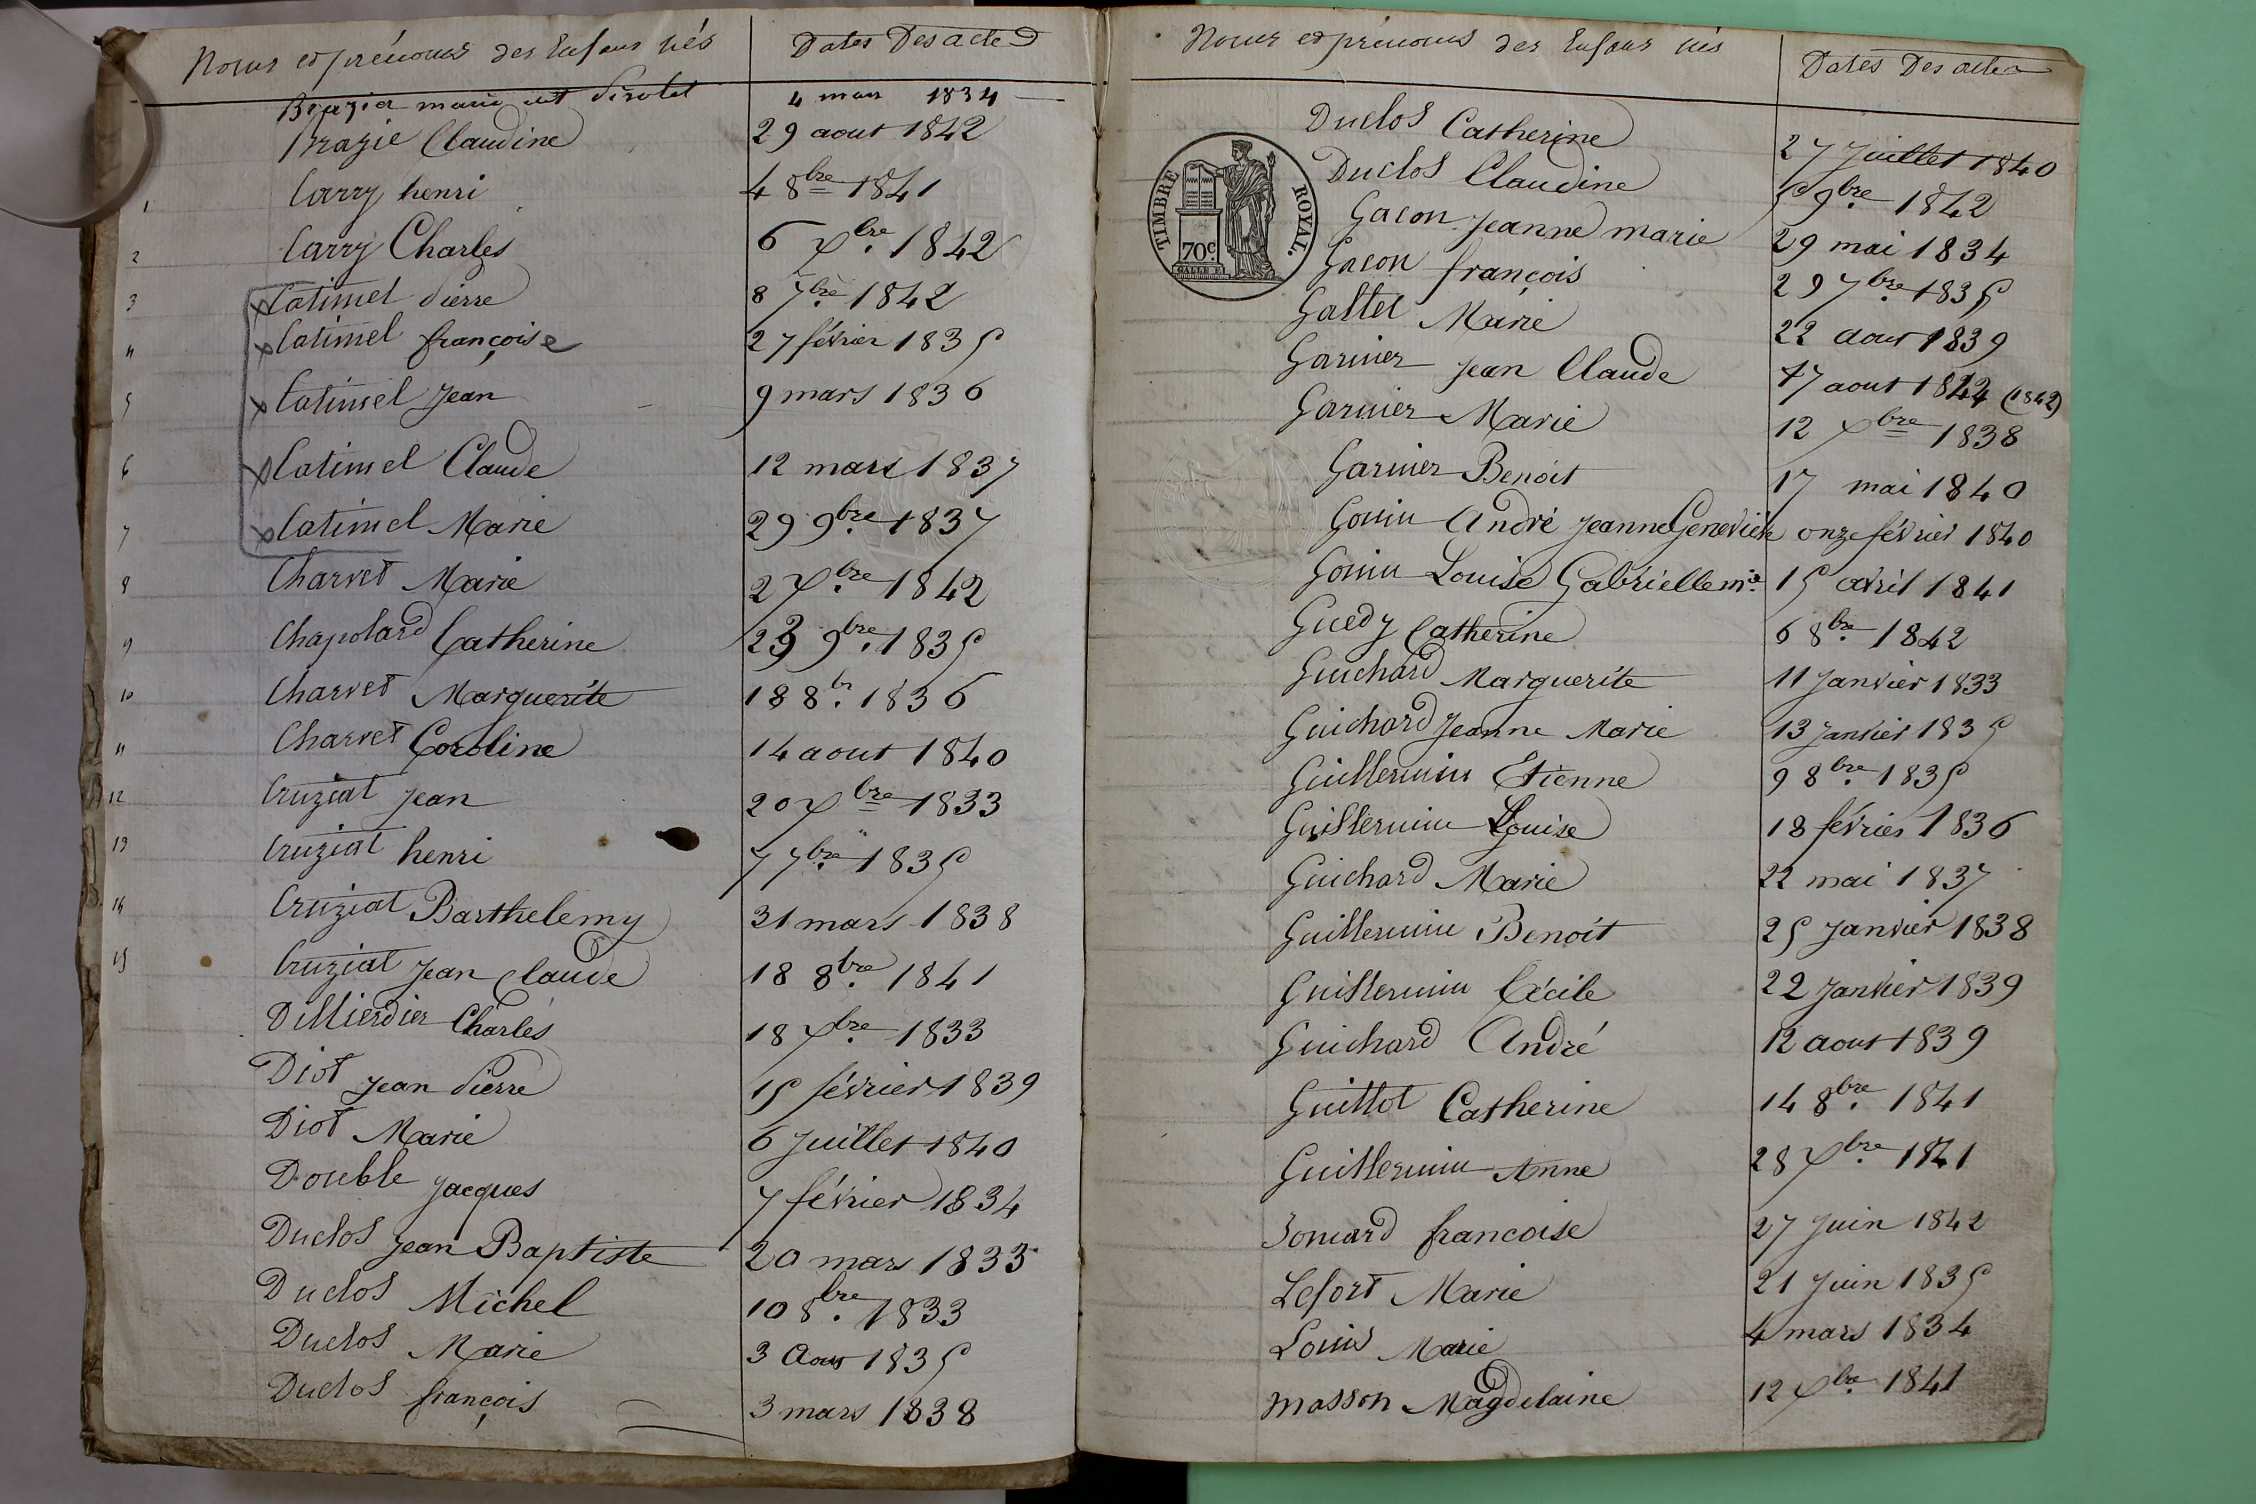 Noms et prénoms des Enfans nés Dates Des actes
Brazier marie 4 mars 1834
Brazie Claudine 29 aout 1842
1 Carry henri 4 8bre 1841
2 Carry Charles 6 Xbre 1842
3 Catimel Pierre 8 7bre 1842
4 Catimel françoise 27 février 1835
5 Catimel Jean 9 mars 1836
6 Catimel Claude 12 mars 1837
7 Catimel Marie 29 9bre 1837
8 Charvet Marie 2 Xbre 1842
9 Chapolard Catherine 9bre 1835
10 Charvet Marguerite 18 8br 1836
11 Charvet Caroline 14 aout 1840
12 Cruziat Jean 20 Xbre 1833
13 Cruziat henri 7 7bre 1835
14 Cruziat Barthelemy 31 mars 1838
15 Cruziat Jean Claude 18 8bre 1841
Dillierdier Charles 18 Xbre 1833
Diot Jean Pierre 15 février 1839
Diot Marie 6 Juillet 1840
Double Jacques 7 février 1834
Duclos Jean Baptiste 20 mars 1833
Duclos Michel 10 8bre 1833
Duclos Marie 3 Aout 1835
Duclos françois 3 mars 1838
Noms et prénoms des Enfans nés Dates Des actes
TIMBRE ROYAL.
70c
Duclos Catherine 27 Juillet 1840
Duclos Claudine 5 9bre 1842
Gacon Jeanne marie 29 mai 1834
Gacon françois 29 7bre 1835
Galtet Marie 22 aout 1839
Garnier Jean Claude 17 aout 1842 (1842)
Garnier Marie 12 Xbre 1838
Garnier Benoit 17 mai 1840
Gonin André Jeanne Genevieve onze février 1840
Gonin Louise Gabrielle mie 15 avril 1841
Guedy Catherine 6 8bre 1842
Guichard Marguerite 11 Janvier 1833
Guichard Jeanne Marie 13 Janvier 1835
Guillermin Etienne 9 8bre 1835
Guillermin Louise 18 février 1836
Guichard Marie 22 mai 1837
Guillermin Benoit 25 Janvier 1838
Guillermin Cécile 22 Janvier 1839
Guichard André 12 aout 1839
Guillot Catherine 14 8bre 1841
Guillermin Anne 28 Xbre 1841
Jomard francoise 27 Juin 1842
Lefort Marie 21 Juin 1835
Louis Marie 4 mars 1834
Masson Magdelaine 12 Xbre 1841